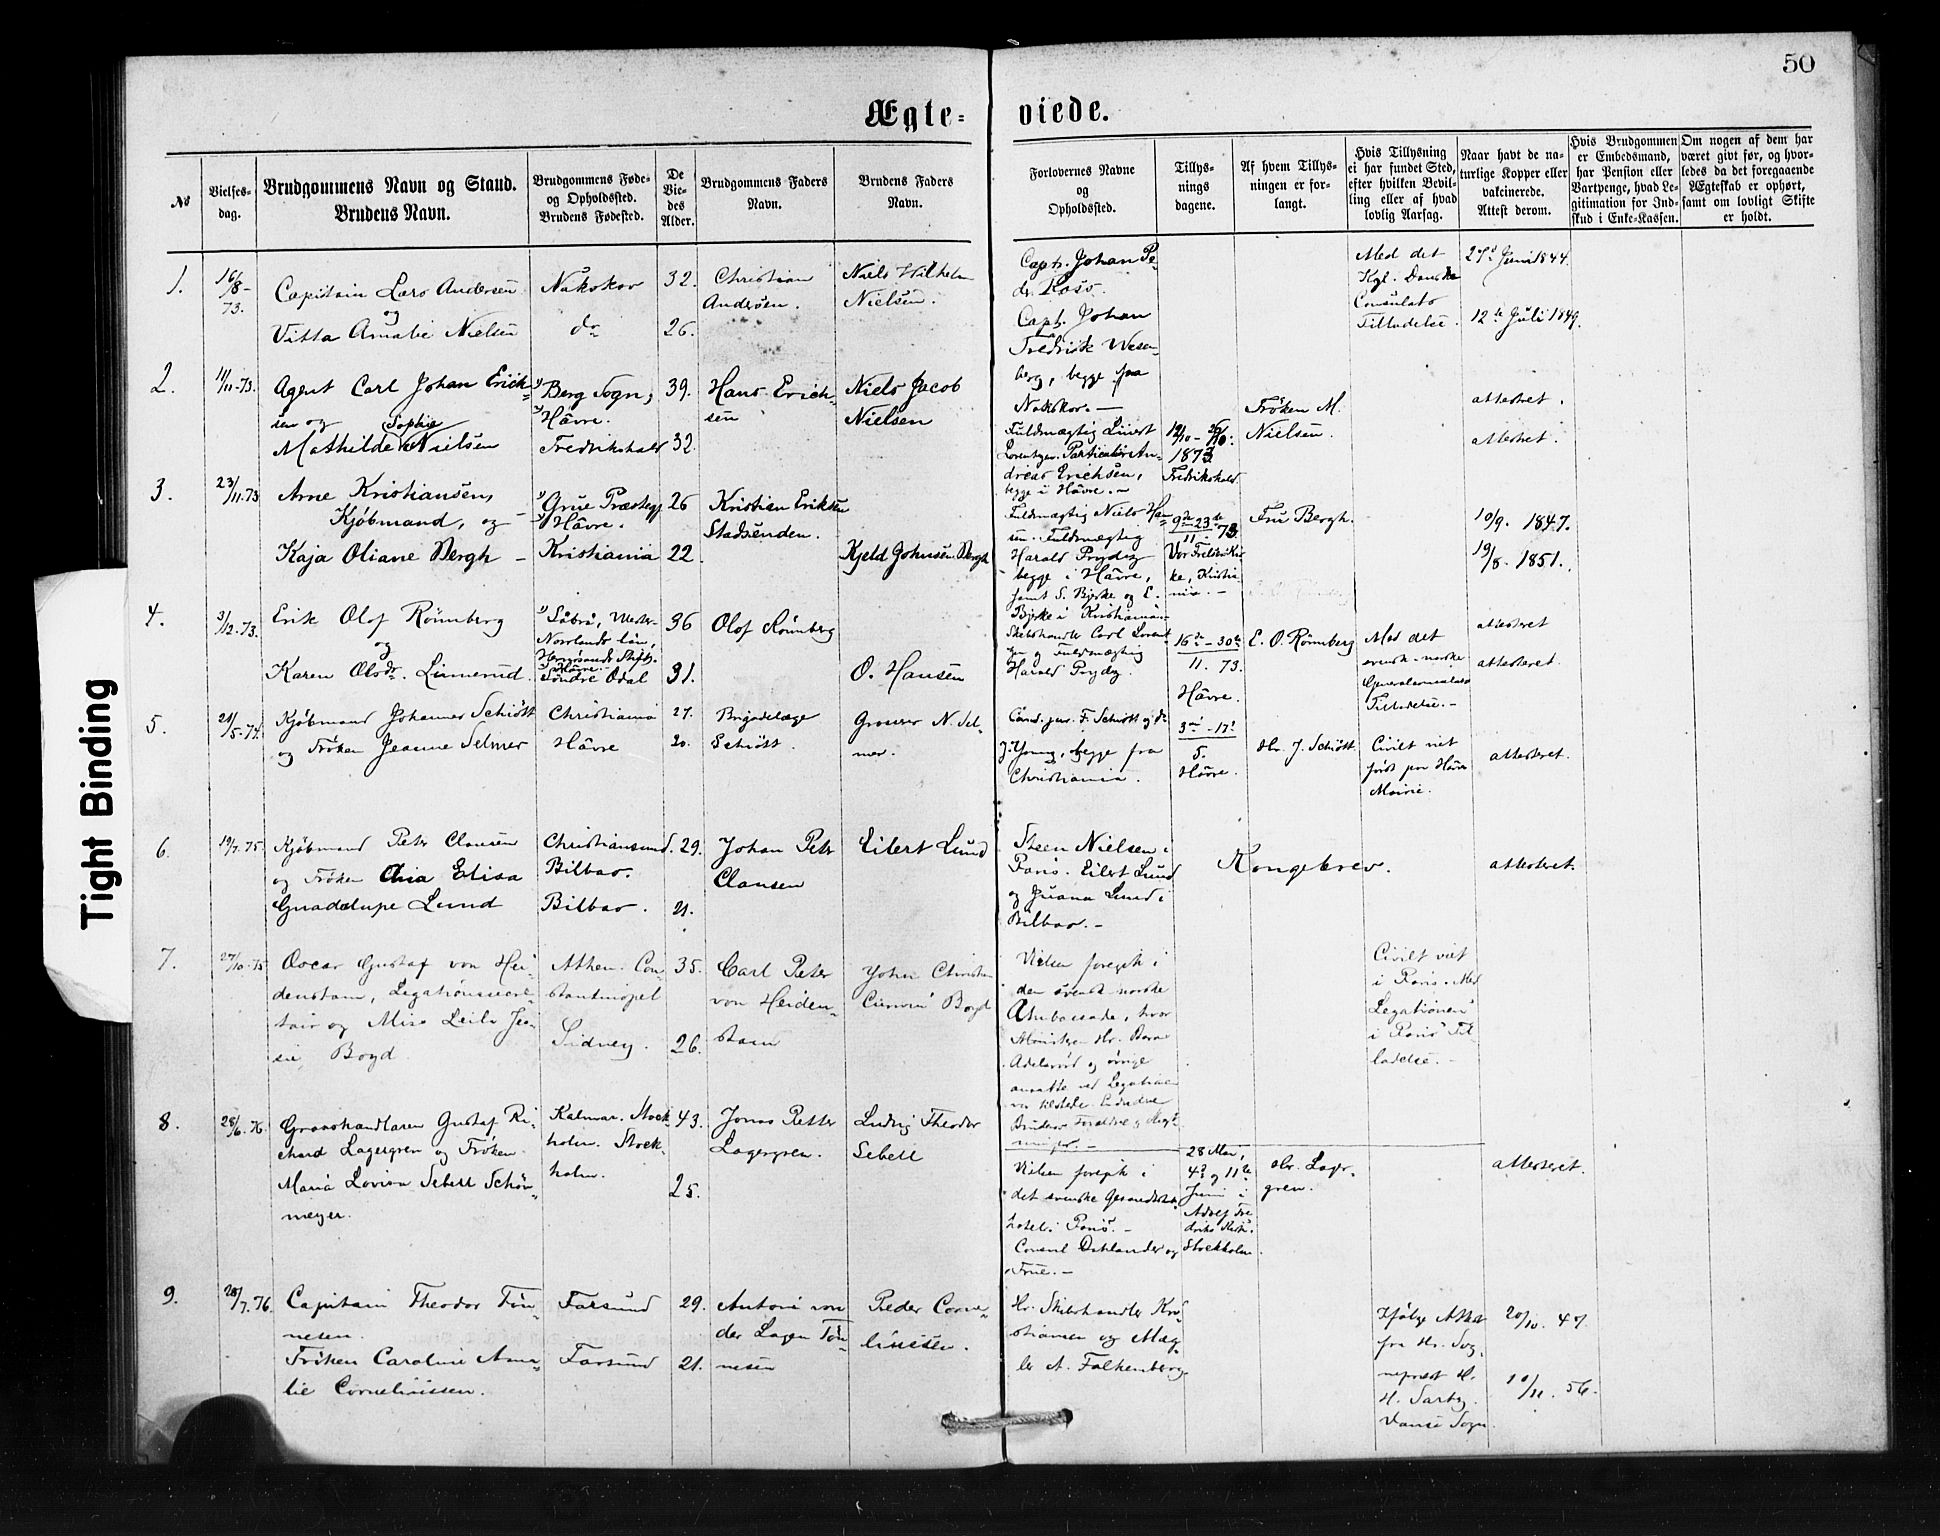 50
Ægte-
viede.
№
Vielses-
dag.
Brudgommens Navn og Stand.
Brudens Navn.
Brudgommens Føde-
og Opholdssted.
Brudens Fødested.
De
Vie-
des
Alder.
Brudgommens Faders
Navn.
Brudens Faders
Navn.
Forlovernes Navne
og
Opholdssted.
Tillys-
nings
dagene.
Af hvem Tillys-
ningen er for-
langt.
Hvis Tillysning
ei har fundet Sted,
efter hvilken Bevil-
ling eller af hvad
lovlig Aarsag.
Naar havt de na-
turlige Kopper eller
vakcinerede.
Attest derom.
Hvis Brudgommen
er Embedsmand,
har Pension eller
Vartpenge, hvad Le-
gitimation for Ind-
skud i Enke-Kassen.
Om nogen af dem har
været givt før, og hvor-
ledes da det foregaaende
Ægteskab er ophørt,
samt om lovligt Skifte
er holdt.
1.
16/8-
73.
Capitain Lars Andersen
og
Vitta Amalie Nielsen
Nakskov
do
32.
26.
Christian
Andersen.
Niels Wilhelm
Nielsen.
Capt. Johan Pe-
der
Capt. Johan
Fredrik Wesen-
berg, begge fra
Nakskov. —
Med det
Kgl. Danske
Consulats
Tilladelse.
27de Juni 1844.
12te Juli 1849.
2.
11/11-73.
Agent Carl Johan Erich-
sen og Sophie
Mathilde Nielsen
1) Berg Sogn,
2) Håvre.
Fredrikshald
39.
32.
Hans Erich-
sen
Niels Jacob
Nielsen
Fuldmægtig
Lorentzen. Particulier An-
dreas Erichsen,
begge i Håvre. —
12/10 - 26/10.
1873.
Fredrikshald
Frøken M.
Nielsen.
attesteret.
attesteret.
3.
23/11.73
Arne Kristiansen,
Kjøbmand, og —
Kaja Oliane Bergh —
1) Grue Præstegj
2) Håvre.
Kristiania
26
22.
Kristian Eriksen
Stadsenden.
Kjeld Johnsen Bergh
Fuldmægtig Niels Han-
sen. Fuldmægtig
Harald Prydz
begge i Håvre,
samt S. Bjerke og E.
Bjerke i Kristiania.
9de-23de
11. 73.
Vor Frelserskir
ke, Kristia-
nia. —
Fru Bergh.
10/9. 1847.
19/8. 1851.
4.
3/12.73.
Erik Olof Rönnberg
og
Karen Olsdr. Linnerud.
1) Säbrå, Vester-
Norrlands län,
Hernösands Stift,
2) Håvre. —
Søndre Odal
36
31.
Olof Rönnberg
O. Hansen
Skibshandler Carl Lorent-
zen og Fuldmægtig
Harald Prydz.
16de-30te
11. 73.
Håvre.
E. O. Rönnberg
Med det
svensk-norske
Generalconsulats
Tilladelse. —
attesteret
attesteret.
5.
21/5-74.
Kjøbmand Johannes Schiøtt
og Frøken Jeanne Selmer
Christiania
Håvre
27.
20.
Brigadelæge
Schiøtt.
Grosserer N. Sel-
mer.
Cand. jur. F. Schiøtt og dr
J. Young, begge fra
Christiania.
3die-17de
5.
Håvre.
Hr. J. Schiøtt
Civilt viet
først paa Håvre
Mairie.
attesteret.
6.
19/7.75.
Kjøbmand Peter Clausen
og Frøken Ana Elisa
Guadelupe Lund
Christianssund.
Bilbao.
Bilbao.
29.
21.
Johan Peter
Clausen
Eilert Lund
Steen Nielsen i
Paris. Eilert Lund
og Juana Lund i
Bilbao. —
Kongebrev.
attesteret.
7.
27/10.75
Oscar Gustaf von Hei-
denstam, Legationssecre-
tair og Miss Leila Jes-
sie, Boyd.
Athen. Con-
stantinopel
Sidney.
35.
26.
Carl Peter
von Heiden-
stam
John Christian
Boyd
Vielsen foregik i
den svensk norske
Ambassade, hvor
Ministeren Hr. Baron
Adelsvärd og øvrige
ansatte ved Legationen
var tilstede. Endvidere
Brudens Forældre og
Civilt viet
i Paris. Med
Legationen
i Paris Til
ladelse. —
8.
28/6.76.
Grosshandlaren Gustaf Ri-
chard Lagergren og Frøken
Maria Lovisa Sebell Schön-
meyer.
Kalmar. Stock
holm. Stock-
holm.
43.
25.
Jonas Petter
Lagergren.
Ludvig Theodor
Sebell
Vielsen foregik i
det svenske Gesandtskabs
hotel i Paris. —
Consul Dahlander og
Frue. —
28 Mai,
4de og 11te
Juni i
Adolf Fre
driks Kirke.
Stockholm.
Hr. Lager-
gren.
attesteret.
9.
28/7.76.
Capitain Theodor Tøn-
nesen.
Frøken Caroline Ama-
lie Corneliussen.
Farsund
Farsund
29.
21.
Antoni von
der Lagen Tøn-
nesen
Peder Corne-
liussen.
Hr. Skibshandler Kri-
stiansen og Mæg-
ler A. Falkenberg.
Ifølge Attest
fra Hr. Sog-
nepræst H.
H. Sartz.
Vanse Sogn.
20/10. 47.
10/11. 56.
Tight Binding